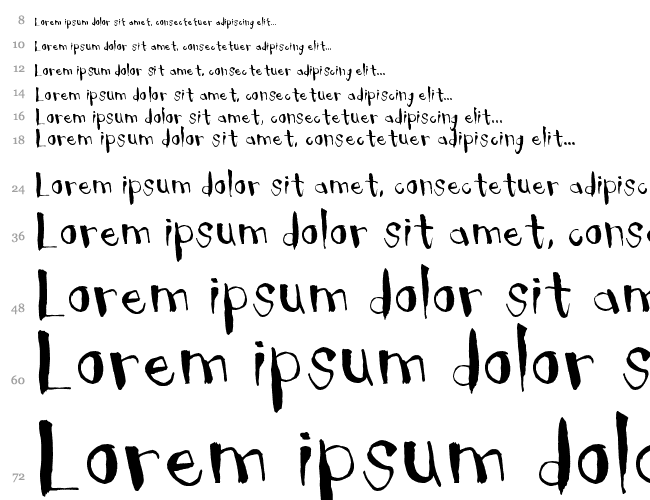 8 Lorem ipsum dolor sit amet, consectetuer adipiscing elit...
10 Lorem ipsum dolor sit amet, consectetuer adipiscing elit...
12 Lorem ipsum dolor sit amet, consectetuer adipiscing elit...
14 Lorem ipsum dolor sit amet, consectetuer adipiscing elit...
16 Lorem ipsum dolor sit amet, consectetuer adipiscing elit...
18 Lorem ipsum dolor sit amet, consectetuer adipiscing elit...
24 Lorem ipsum dolor sit amet, consectetuer adipisc
36 Lorem ipsum dolor sit amet, conse
48 Lorem ipsum dolor sit am
60 Lorem ipsum dolor s
72 Lorem ipsum dolo